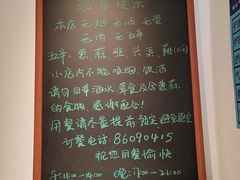 温馨提示
本店无烟 无酒 无蛋
无肉 无五辛
五辛: 葱 蒜 韭 兴渠 薤
小店内不能吸烟、饮酒
请勿自带酒水 荤食及含葱蒜
的食物, 感谢配合!
用餐请尽量提前预定
订餐电话: 86090415
祝您用餐愉快
午: 11:00-14:00 晚: 17:00-21:00